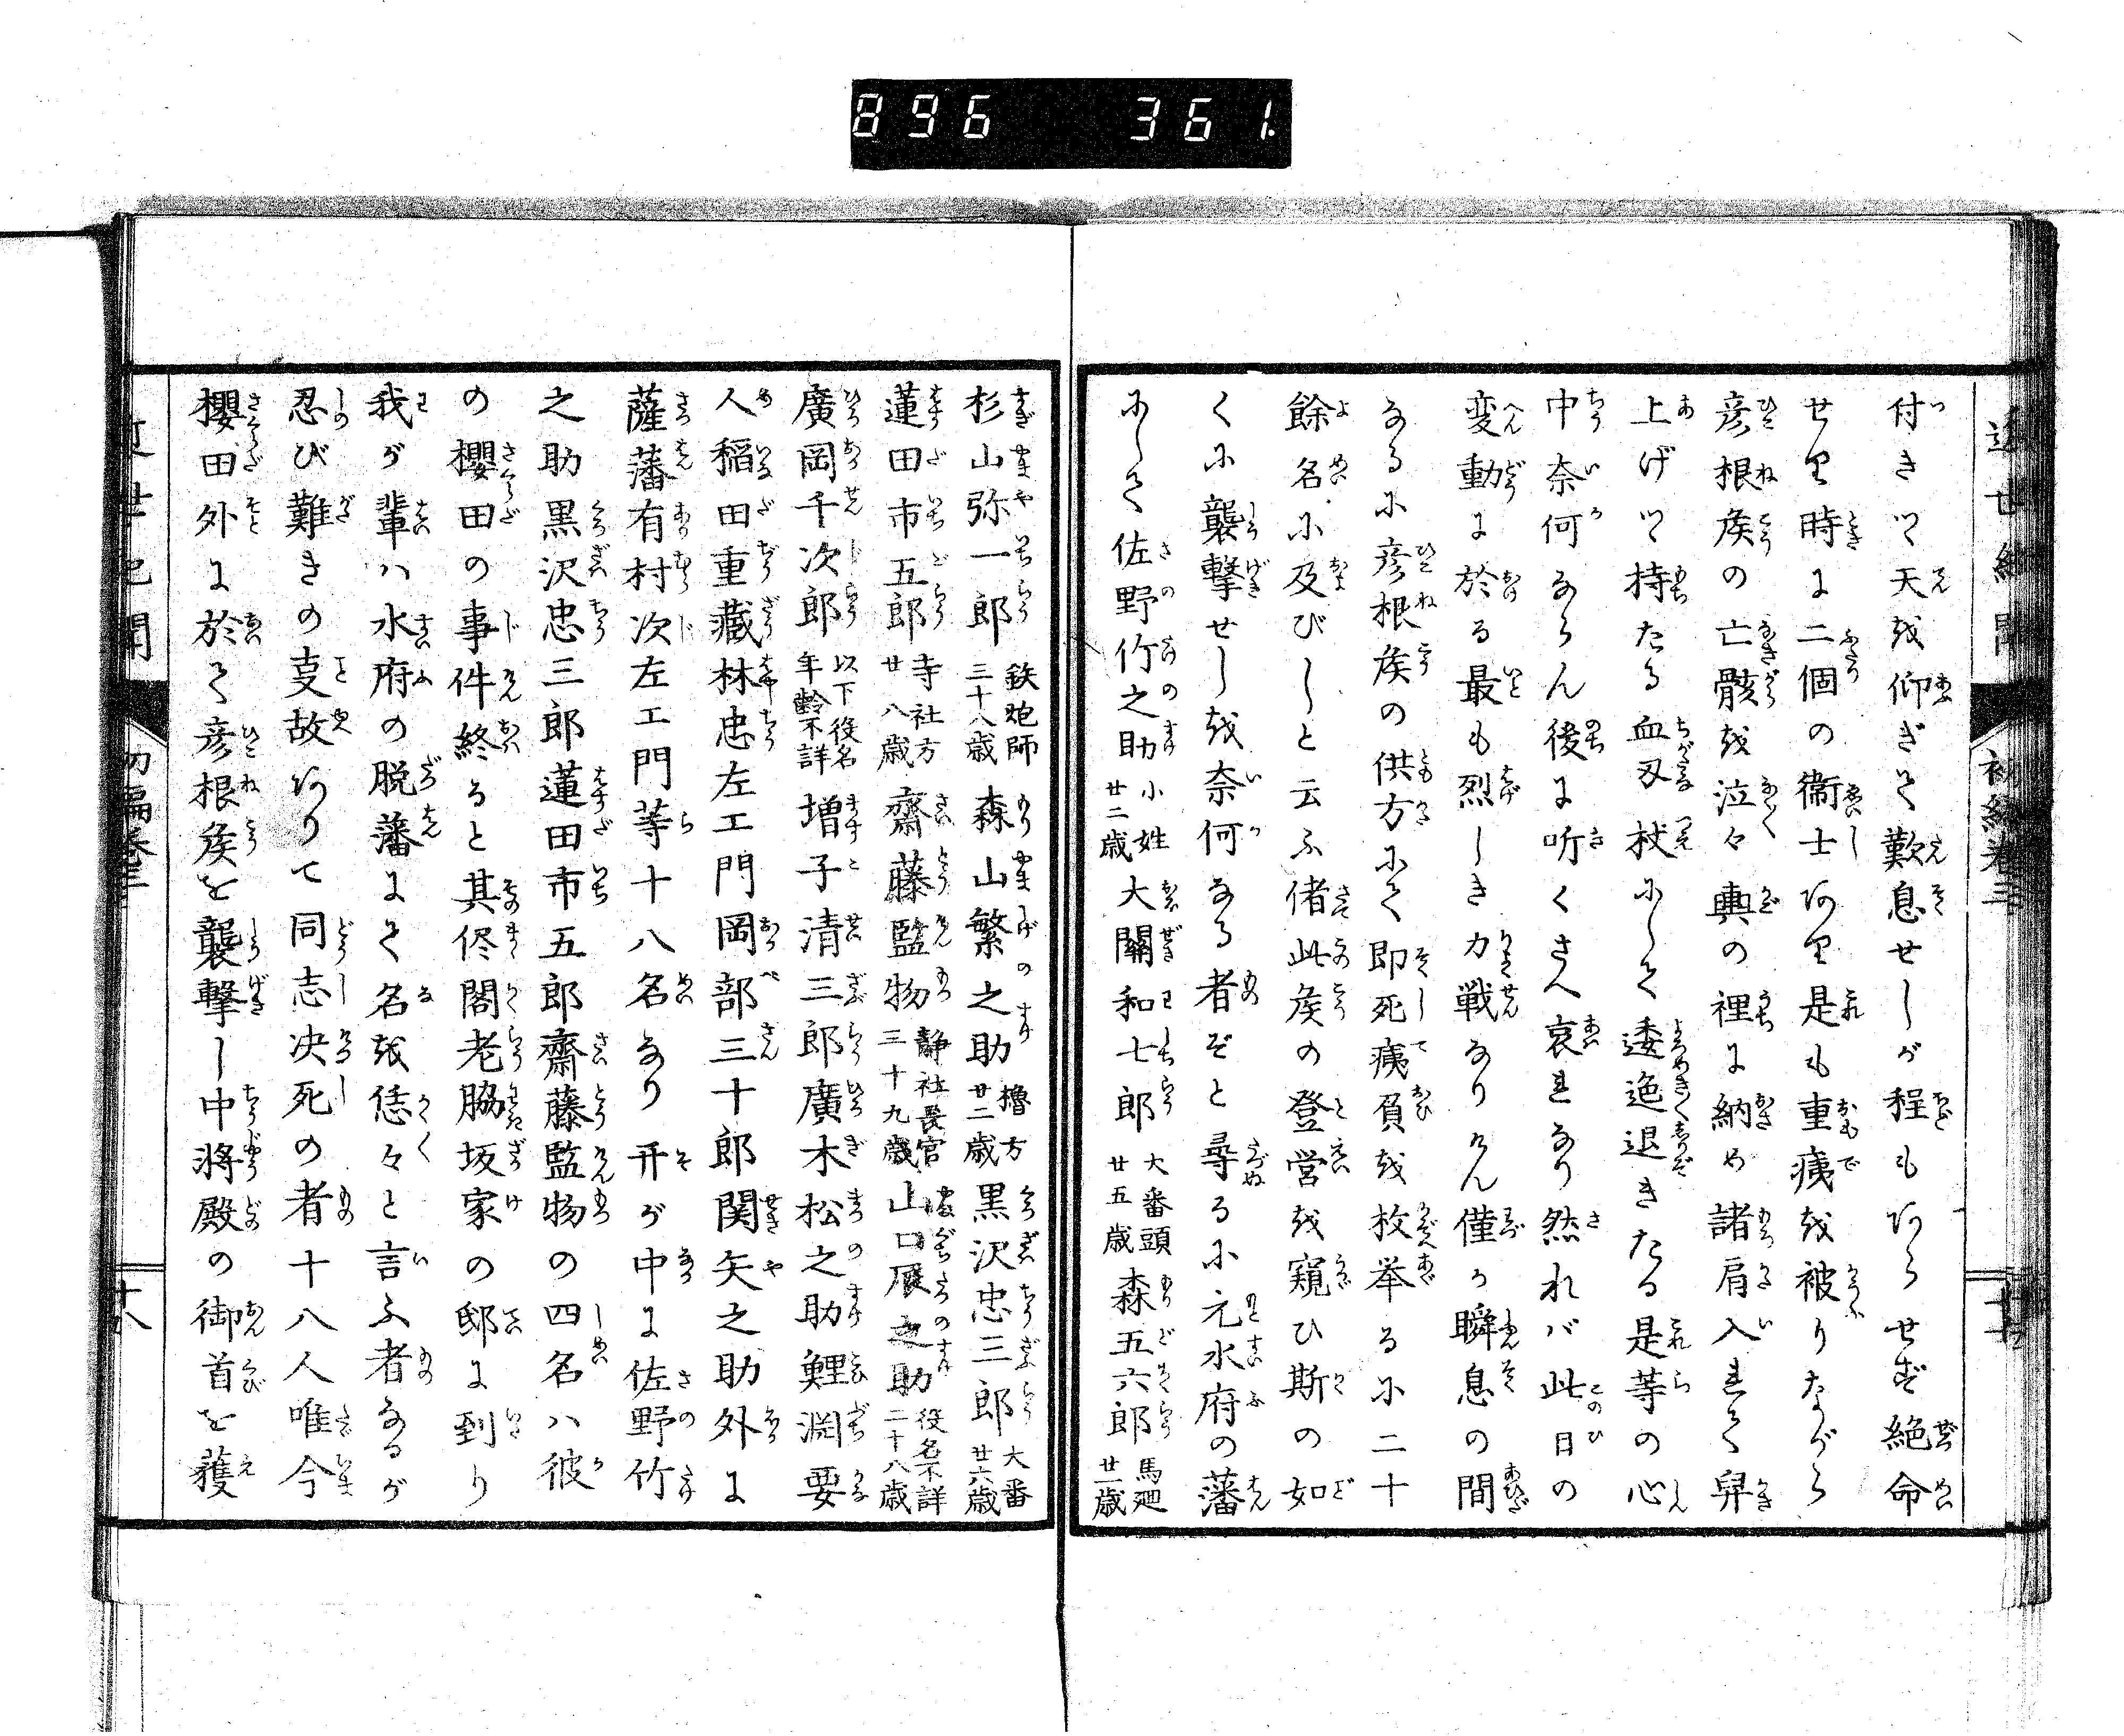 896 361.
近世紀聞
初編巻三
付きツヽ天を仰ぎて歎息せしが程もあらせず絶命
せり時に二個の衛士あり是も重痍を被りながら
彦根侯の亡骸を泣々輿の裡に納め諸肩入れて舁
上げツヽ持たる血刄杖にして逶迤退きたる是等の心
中奈何ならん後に听くさへ哀れなり然れバ此日の
変動に於る最も烈しき力戦なりけん僅か瞬息の間
なるに彦根侯の供方にて即死痍負を枚挙るに二十
餘名に及びしと云ふ偖此侯の登営を窺ひ斯の如
くに襲撃せしを奈何なる者ぞと尋るに元水府の藩
にして佐野竹之助小姓廿二歳大關和七郎大番頭廿五歳森五六郎馬廻廿一歳
杉山弥一郎鉄炮師三十八歳森山繁之助櫓方廿二歳黒沢忠三郎大番廿六歳
蓮田市五郎寺社方廿八歳齋藤監物静社長官三十九歳山口辰之助役名不詳二十八歳
廣岡千次郎以下役名年齢不詳増子清三郎廣木松之助鯉渕要
人稲田重藏林忠左エ門岡部三十郎関矢之助外に
薩藩有村次左エ門等十八名なり开が中に佐野竹
之助黒沢忠三郎蓮田市五郎齋藤監物の四名ハ彼
の櫻田の事件終ると其侭閣老脇坂家の邸に到り
我が輩ハ水府の脱藩にて名を恁々と言ふ者なるが
忍び難きの支故ありて同志决死の者十八人唯今
櫻田外に於て彦根侯を襲撃し中将殿の御首を獲
近世紀聞
初編巻三
十八